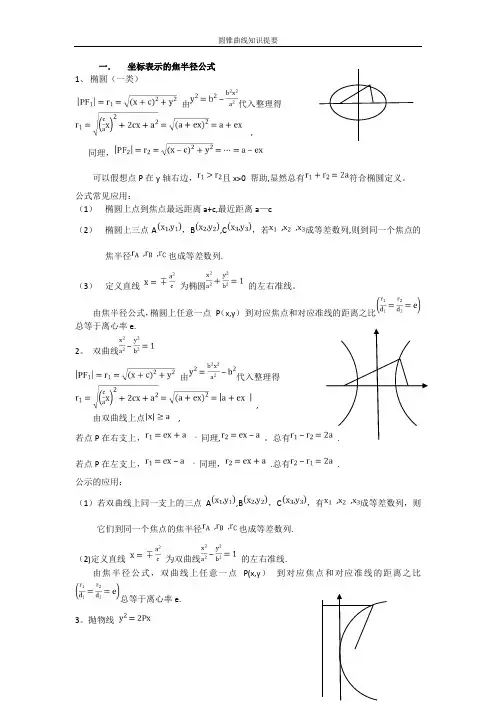 圆锥曲线知识提要
一. 坐标表示的焦半径公式
1、 椭圆（一类）
|PF₁| = r₁ = √((x + c)² + y²) 由y² = b² − b²x²/a² 代入整理得
r₁ = √((c/a x)² + 2cx + a²) = √((a + ex)²) = a + ex ，
同理，|PF₂| = r₂ = √((x − c)² + y²) = ⋯ = a − ex
可以假想点 P 在 y 轴右边，r₁ > r₂且 x>0 帮助,显然总有r₁ + r₂ = 2a符合椭圆定义。
公式常见应用：
（1） 椭圆上点到焦点最远距离 a+c,最近距离 a—c
（2） 椭圆上三点 A(x₁,y₁)，B(x₂,y₂),C(x₃,y₃)，若x₁ ,x₂ ,x₃成等差数列,则到同一个焦点的
焦半径r_A ,r_B ,r_C也成等差数列.
（3） 定义直线 x = ∓a²/c 为椭圆x²/a² + y²/b² = 1 的左右准线。
由焦半径公式,椭圆上任意一点 P（x,y）到对应焦点和对应准线的距离之比(r₁/d₁ = r₂/d₂ = e)
总等于离心率 e.
2。 双曲线x²/a² − y²/b² = 1
|PF₁| = r₁ = √((x + c)² + y²) 由y² = b²x²/a² − b²代入整理得
r₁ = √((c/a x)² + 2cx + a²) = √((a + ex)²) = |a + ex | ，
由双曲线上点|x| ≥ a ，
若点 P 在右支上，r₁ = ex + a ·同理,r₂ = ex − a 。总有r₁ − r₂ = 2a .
若点 P 在左支上，r₁ = ex − a ·同理，r₂ = ex + a .总有r₂ − r₁ = 2a .
公示的应用：
（1）若双曲线上同一支上的三点 A(x₁,y₁),B(x₂,y₂)，C(x₃,y₃)，有x₁ ,x₂ ,x₃成等差数列，则
它们到同一个焦点的焦半径r_A ,r_B ,r_C也成等差数列.
(2)定义直线 x = ∓a²/c 为双曲线x²/a² − y²/b² = 1 的左右准线.
由焦半径公式，双曲线上任意一点 P(x,y） 到对应焦点和对应准线的距离之比
(r₁/d₁ = r₂/d₂ = e)总等于离心率 e.
3。抛物线 y² = 2Px